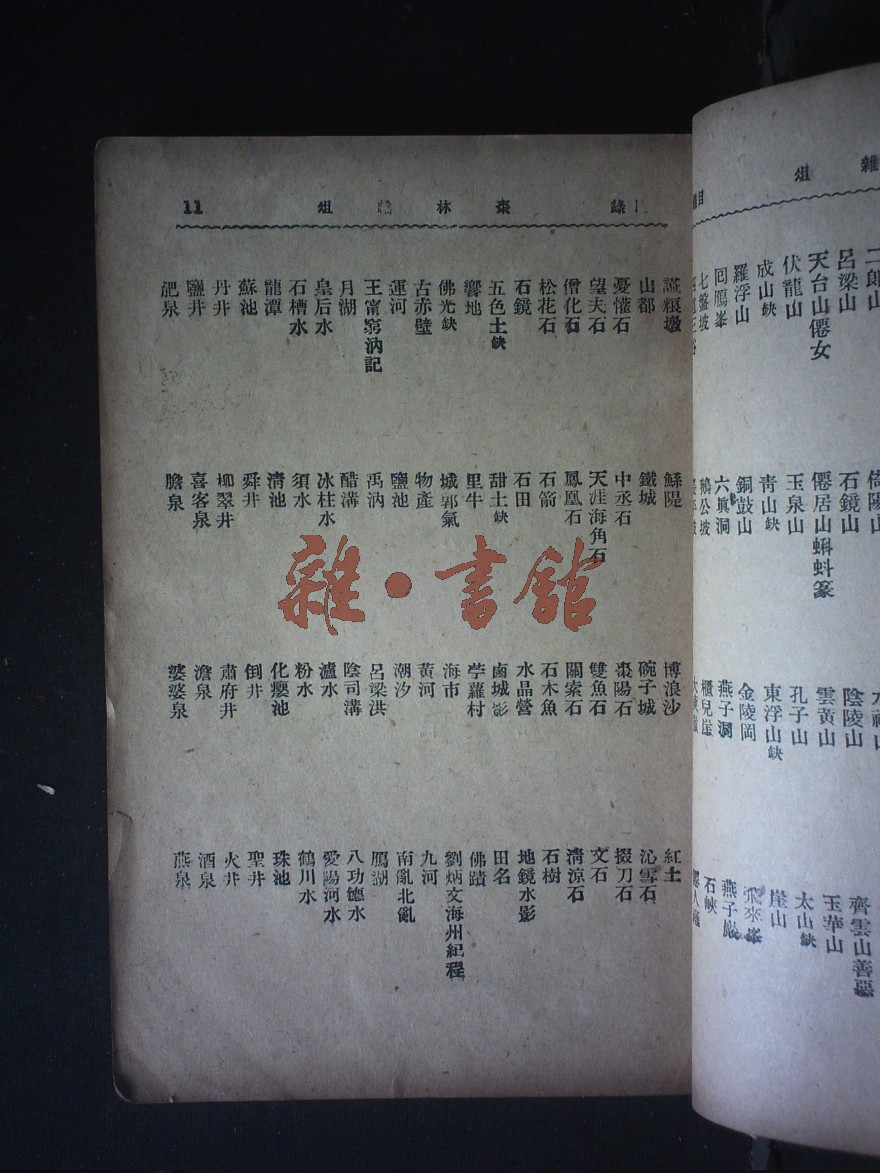 雜 俎
目
二郎山
呂梁山
天台山僊女
伏龍山
成山缺
羅浮山
囘鴈峯
七盤坡
倚陽山
石鏡山
僊居山蝌蚪篆
玉泉山
靑山缺
銅鼓山
六眞洞
鵝公坡
陰陵山
雲黃山
孔子山
東浮山缺
金陵岡
燕子洞
櫃兒崖
齊雲山善惡
玉華山
太山缺
崖山
飛來峯
燕子巖
石峽
錄 棗 林 雜 俎 11
謊糧墩
山都
憂懽石
望夫石
僧化石
松花石
石鏡
五色土缺
響地
佛光缺
古赤壁
運河
王甯窮汭記
月湖
皇后水
石槽水
龍潭
蘇池
丹井
鹽井
肥泉
鯀隄
鐵城
中丞石
天涯海角石
鳳凰石
石箭
石田
甜土缺
里牛
城郭氣
物產
鹽池
禹汭
醋溝
冰柱水
須水
淸池
舜井
柳翠井
喜客泉
膽泉
博浪沙
碗子城
棗陽石
雙魚石
關索石
石木魚
水晶營
鹵城影
苧蘿村
海市
黃河
潮汐
呂梁洪
陰司溝
瀘水
粉水
化癭池
倒井
肅府井
澹泉
婆婆泉
紅土
沁雪石
掇刀石
文石
淸涼石
石樹
地鏡水影
田名
佛蹟
劉炳文海州紀程
九河
南亂北亂
鴈湖
八功德水
愛陽河水
鶴川水
珠池
聖井
火井
酒泉
燕泉
雜·書館